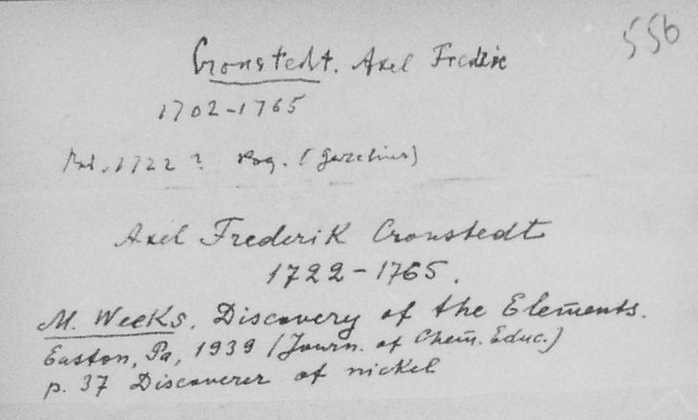 556
Cronstedt. Axel Frederic
1702-1765
1722 ? Pog. (Gezelius)
Axel Frederik Cronstedt
1722-1765.
M. Weeks. Discovery of the Elements.
Easton, Pa, 1939 (Journ. of Chem. Educ.)
p. 37 Discoverer of nickel